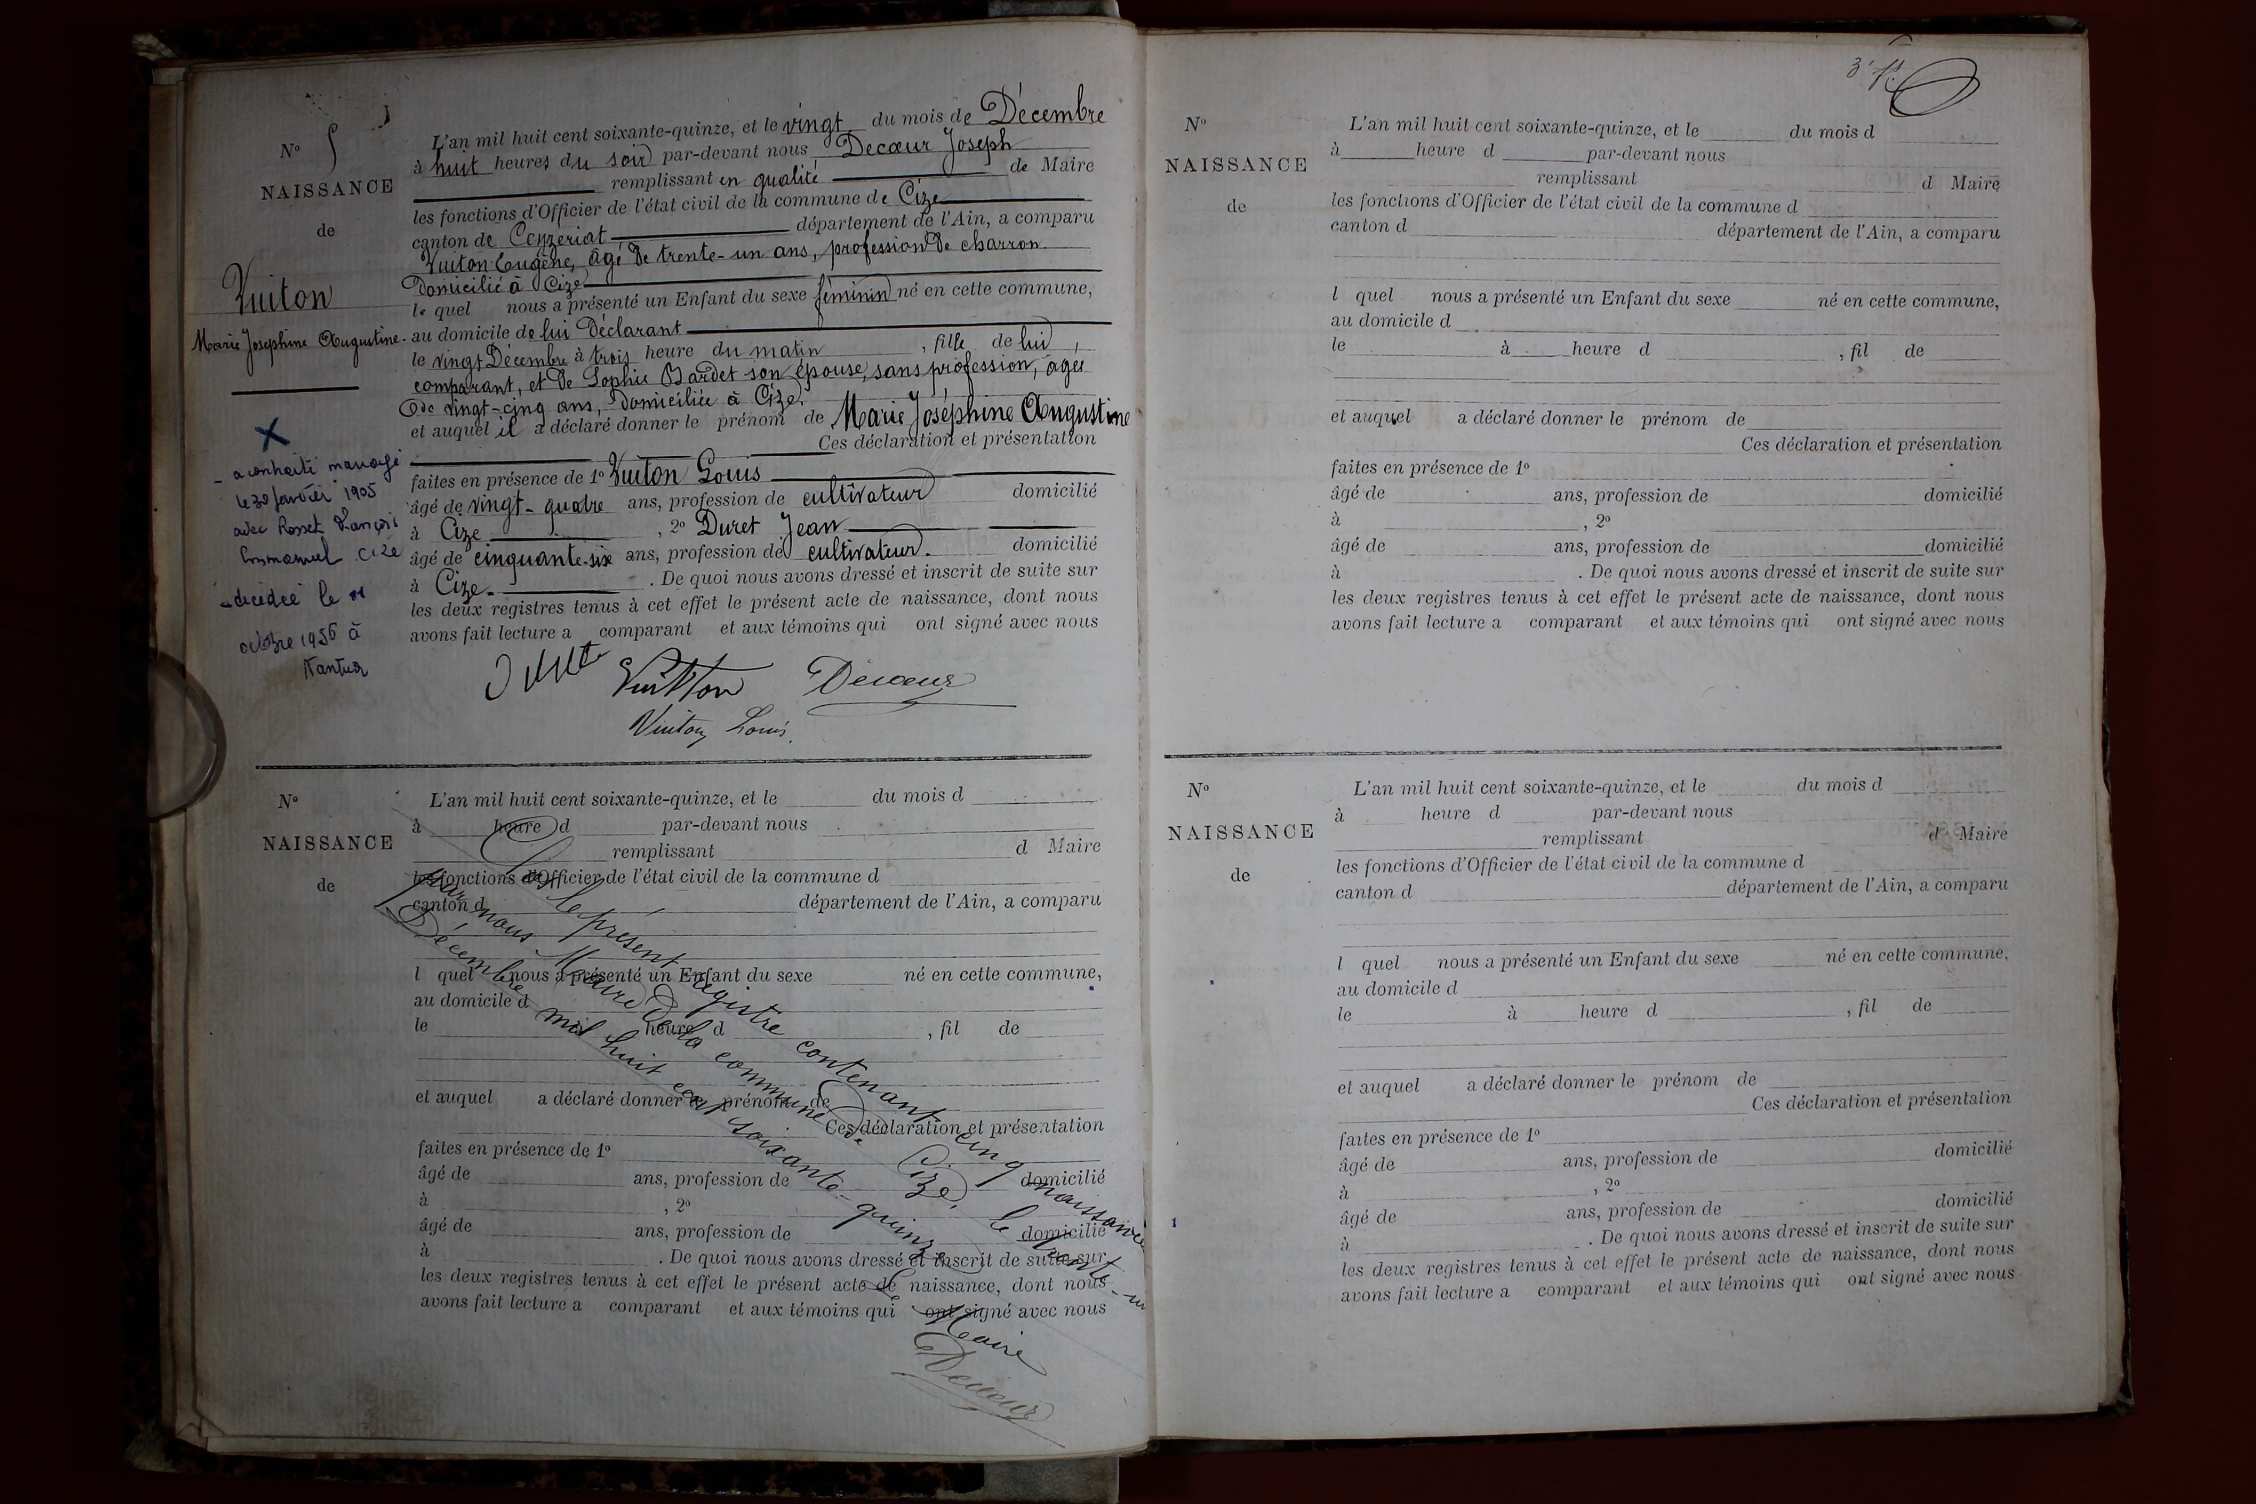 N° 5
NAISSANCE
de
Vuiton
Marie Joséphine Augustine.
- a contracté mariage
le 30 janvier 1905
avec Rosset François
Emmanuel Cize
- décédée le
octobre 1956 à
Nantua
L'an mil huit cent soixante-quinze, et le vingt du mois de Décembre
à huit heures du soir par-devant nous Decœur Joseph
remplissant en qualité de Maire
les fonctions d'Officier de l'état civil de la commune de Cize
canton de Ceyzeriat département de l'Ain, a comparu
Vuiton Eugène, âgé de trente-un ans, profession de charron
Domicilié à Cize
le quel nous a présenté un Enfant du sexe féminin né en cette commune,
au domicile de lui Déclarant
le vingt Décembre à trois heure du matin, fille de lui
comparant, et de Sophie Bardet son épouse, sans profession, âgée
de vingt-cinq ans, domiciliée à Cize,
et auquel il a déclaré donner le prénom de Marie Joséphine Augustine
Ces déclaration et présentation
faites en présence de 1° Vuiton Louis
âgé de vingt-quatre ans, profession de cultivateur domicilié
à Cize, 2° Duret Jean
âgé de cinquante-six ans, profession de cultivateur. domicilié
à Cize. De quoi nous avons dressé et inscrit de suite sur
les deux registres tenus à cet effet le présent acte de naissance, dont nous
avons fait lecture a comparant et aux témoins qui ont signé avec nous
Duret Vuitton Decœur
Vuiton Louis.
N°
NAISSANCE
de
L'an mil huit cent soixante-quinze, et le du mois d
à heure d par-devant nous
remplissant d Maire
les fonctions d'Officier de l'état civil de la commune d
canton d département de l'Ain, a comparu
l quel nous a présenté un Enfant du sexe né en cette commune,
au domicile d
le à heure d , fil de
et auquel a déclaré donner le prénom de
Ces déclaration et présentation
faites en présence de 1°
âgé de ans, profession de domicilié
à , 2°
âgé de ans, profession de domicilié
à . De quoi nous avons dressé et inscrit de suite sur
les deux registres tenus à cet effet le présent acte de naissance, dont nous
avons fait lecture a comparant et aux témoins qui ont signé avec nous
le présent registre contenant cinq naissances
par nous Maire de la commune de Cize, le vingt-un
Décembre mil huit cent soixante-quinze
Le Maire
Decœur
3e
N°
NAISSANCE
de
L'an mil huit cent soixante-quinze, et le du mois d
à heure d par-devant nous
remplissant d Maire
les fonctions d'Officier de l'état civil de la commune d
canton d département de l'Ain, a comparu
l quel nous a présenté un Enfant du sexe né en cette commune,
au domicile d
le à heure d , fil de
et auquel a déclaré donner le prénom de
Ces déclaration et présentation
faites en présence de 1°
âgé de ans, profession de domicilié
à , 2°
âgé de ans, profession de domicilié
à . De quoi nous avons dressé et inscrit de suite sur
les deux registres tenus à cet effet le présent acte de naissance, dont nous
avons fait lecture a comparant et aux témoins qui ont signé avec nous
N°
NAISSANCE
de
L'an mil huit cent soixante-quinze, et le du mois d
à heure d par-devant nous
remplissant d Maire
les fonctions d'Officier de l'état civil de la commune d
canton d département de l'Ain, a comparu
l quel nous a présenté un Enfant du sexe né en cette commune,
au domicile d
le à heure d , fil de
et auquel a déclaré donner le prénom de
Ces déclaration et présentation
faites en présence de 1°
âgé de ans, profession de domicilié
à , 2°
âgé de ans, profession de domicilié
à . De quoi nous avons dressé et inscrit de suite sur
les deux registres tenus à cet effet le présent acte de naissance, dont nous
avons fait lecture a comparant et aux témoins qui ont signé avec nous